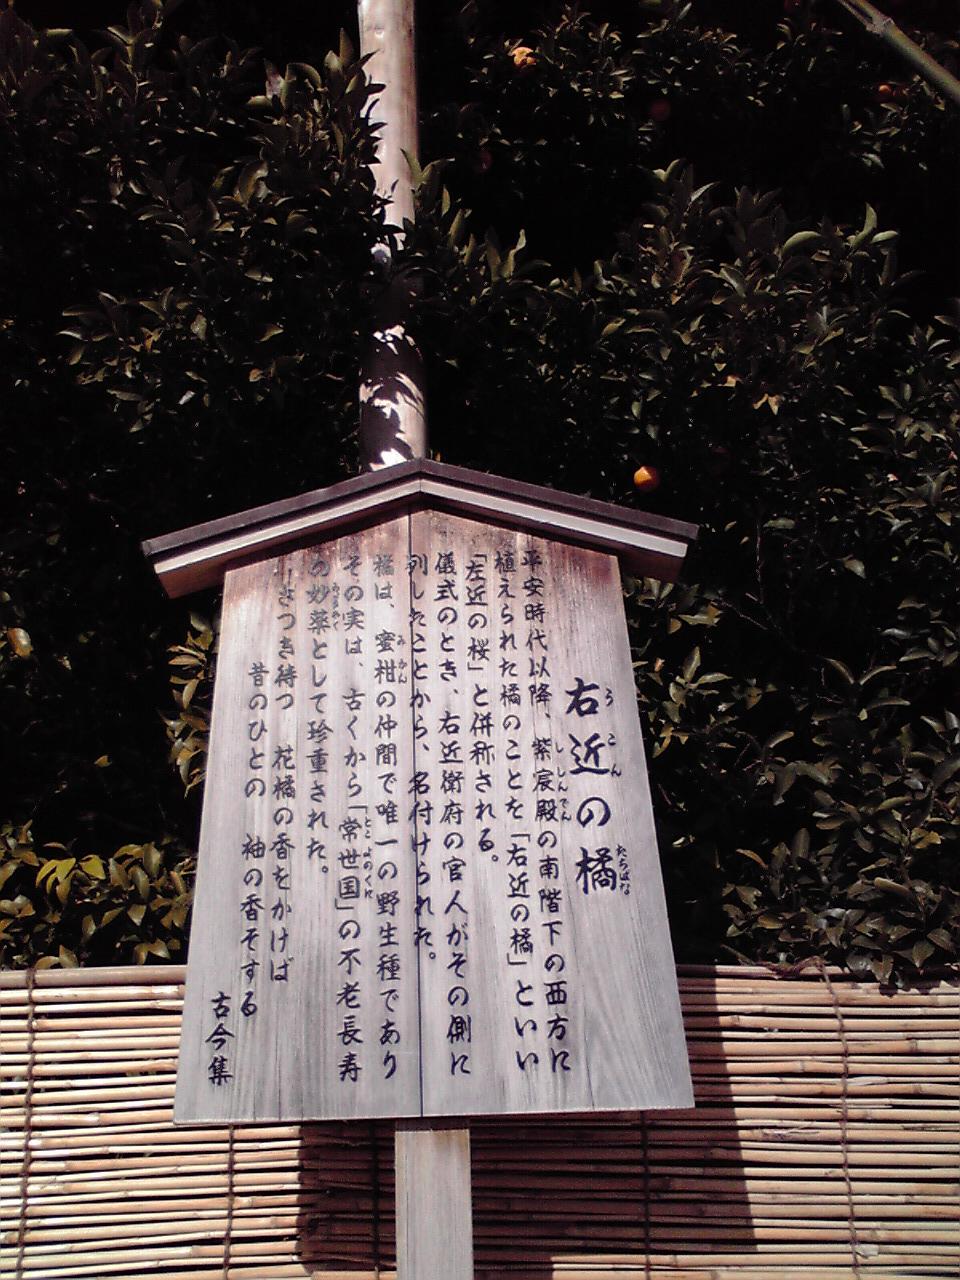 右近の橘
平安時代以降、紫宸殿の南階下の西方に
植えられた橘のことを「右近の橘」といい
「左近の桜」と併称される。
儀式のとき、右近衛府の官人がその側に
列したことから、名付けられた。
橘は、蜜柑の仲間で唯一の野生種であり
その実は、古くから「常世国」の不老長寿
の妙薬として珍重された。
さつき待つ 花橘の香をかげば
昔のひとの 袖の香そする
古今集